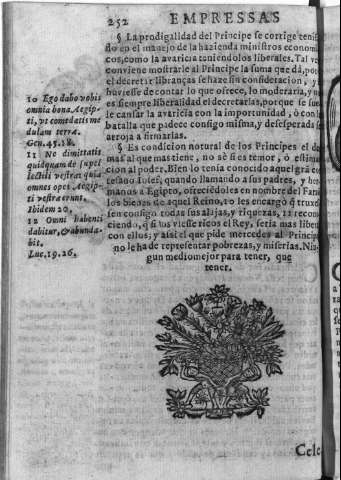 252 EMPRESSAS
§ La prodigalidad del Principe se corrige tenié
do en el manejo de la hazienda ministros economi
cos, como la avaricia teniendolos liberales. Tal vez
conviene mostrarle al Principe la suma que dá, porq
el decretar libranças se haze sin consideracion, y si
huviesse de contar lo que ofrece, lo moderaria, y no
es siempre liberalidad el decretarlas, porque se suele
cansar la avaricia con la importunidad, ò con la
batalla que padece consigo misma, y desesperada se
arroja à firmarlas.
§ Es condicion natural de los Principes el dar
mas al que mas tiene, no sè si es temor, ò estima
cion al poder. Bien lo tenia conocido aquel gra cor
tesano Iosef, quando llamando à sus padres, y her
manos à Egipto, ofreciédoles en nombre del Faraó
los bienes de aquel Reino, 10 les encargó q truxes
sen consigo todas sus alajas, y riquezas, 11 recono
ciendo, q si los viesse ricos el Rey, seria mas liberal
con ellos; y assi el que pide mercedes al Principe
no le ha de representar pobrezas, y miserias. Nin-
gun medio mejor para tener, que
tener.
10 Ego dabo vobis
omnia bona Aegip-
ti, ut comedatis me
dulam terræ.
Gen. 45. 18.
11 Ne dimittatis
quidquam de supel
lectili vestra quia
omnes opes Aegip-
ti vestra erunt.
Ibidem 20.
12 Omni habenti
dabitur, & abunda-
bit.
Luc. 19. 26.
Cele